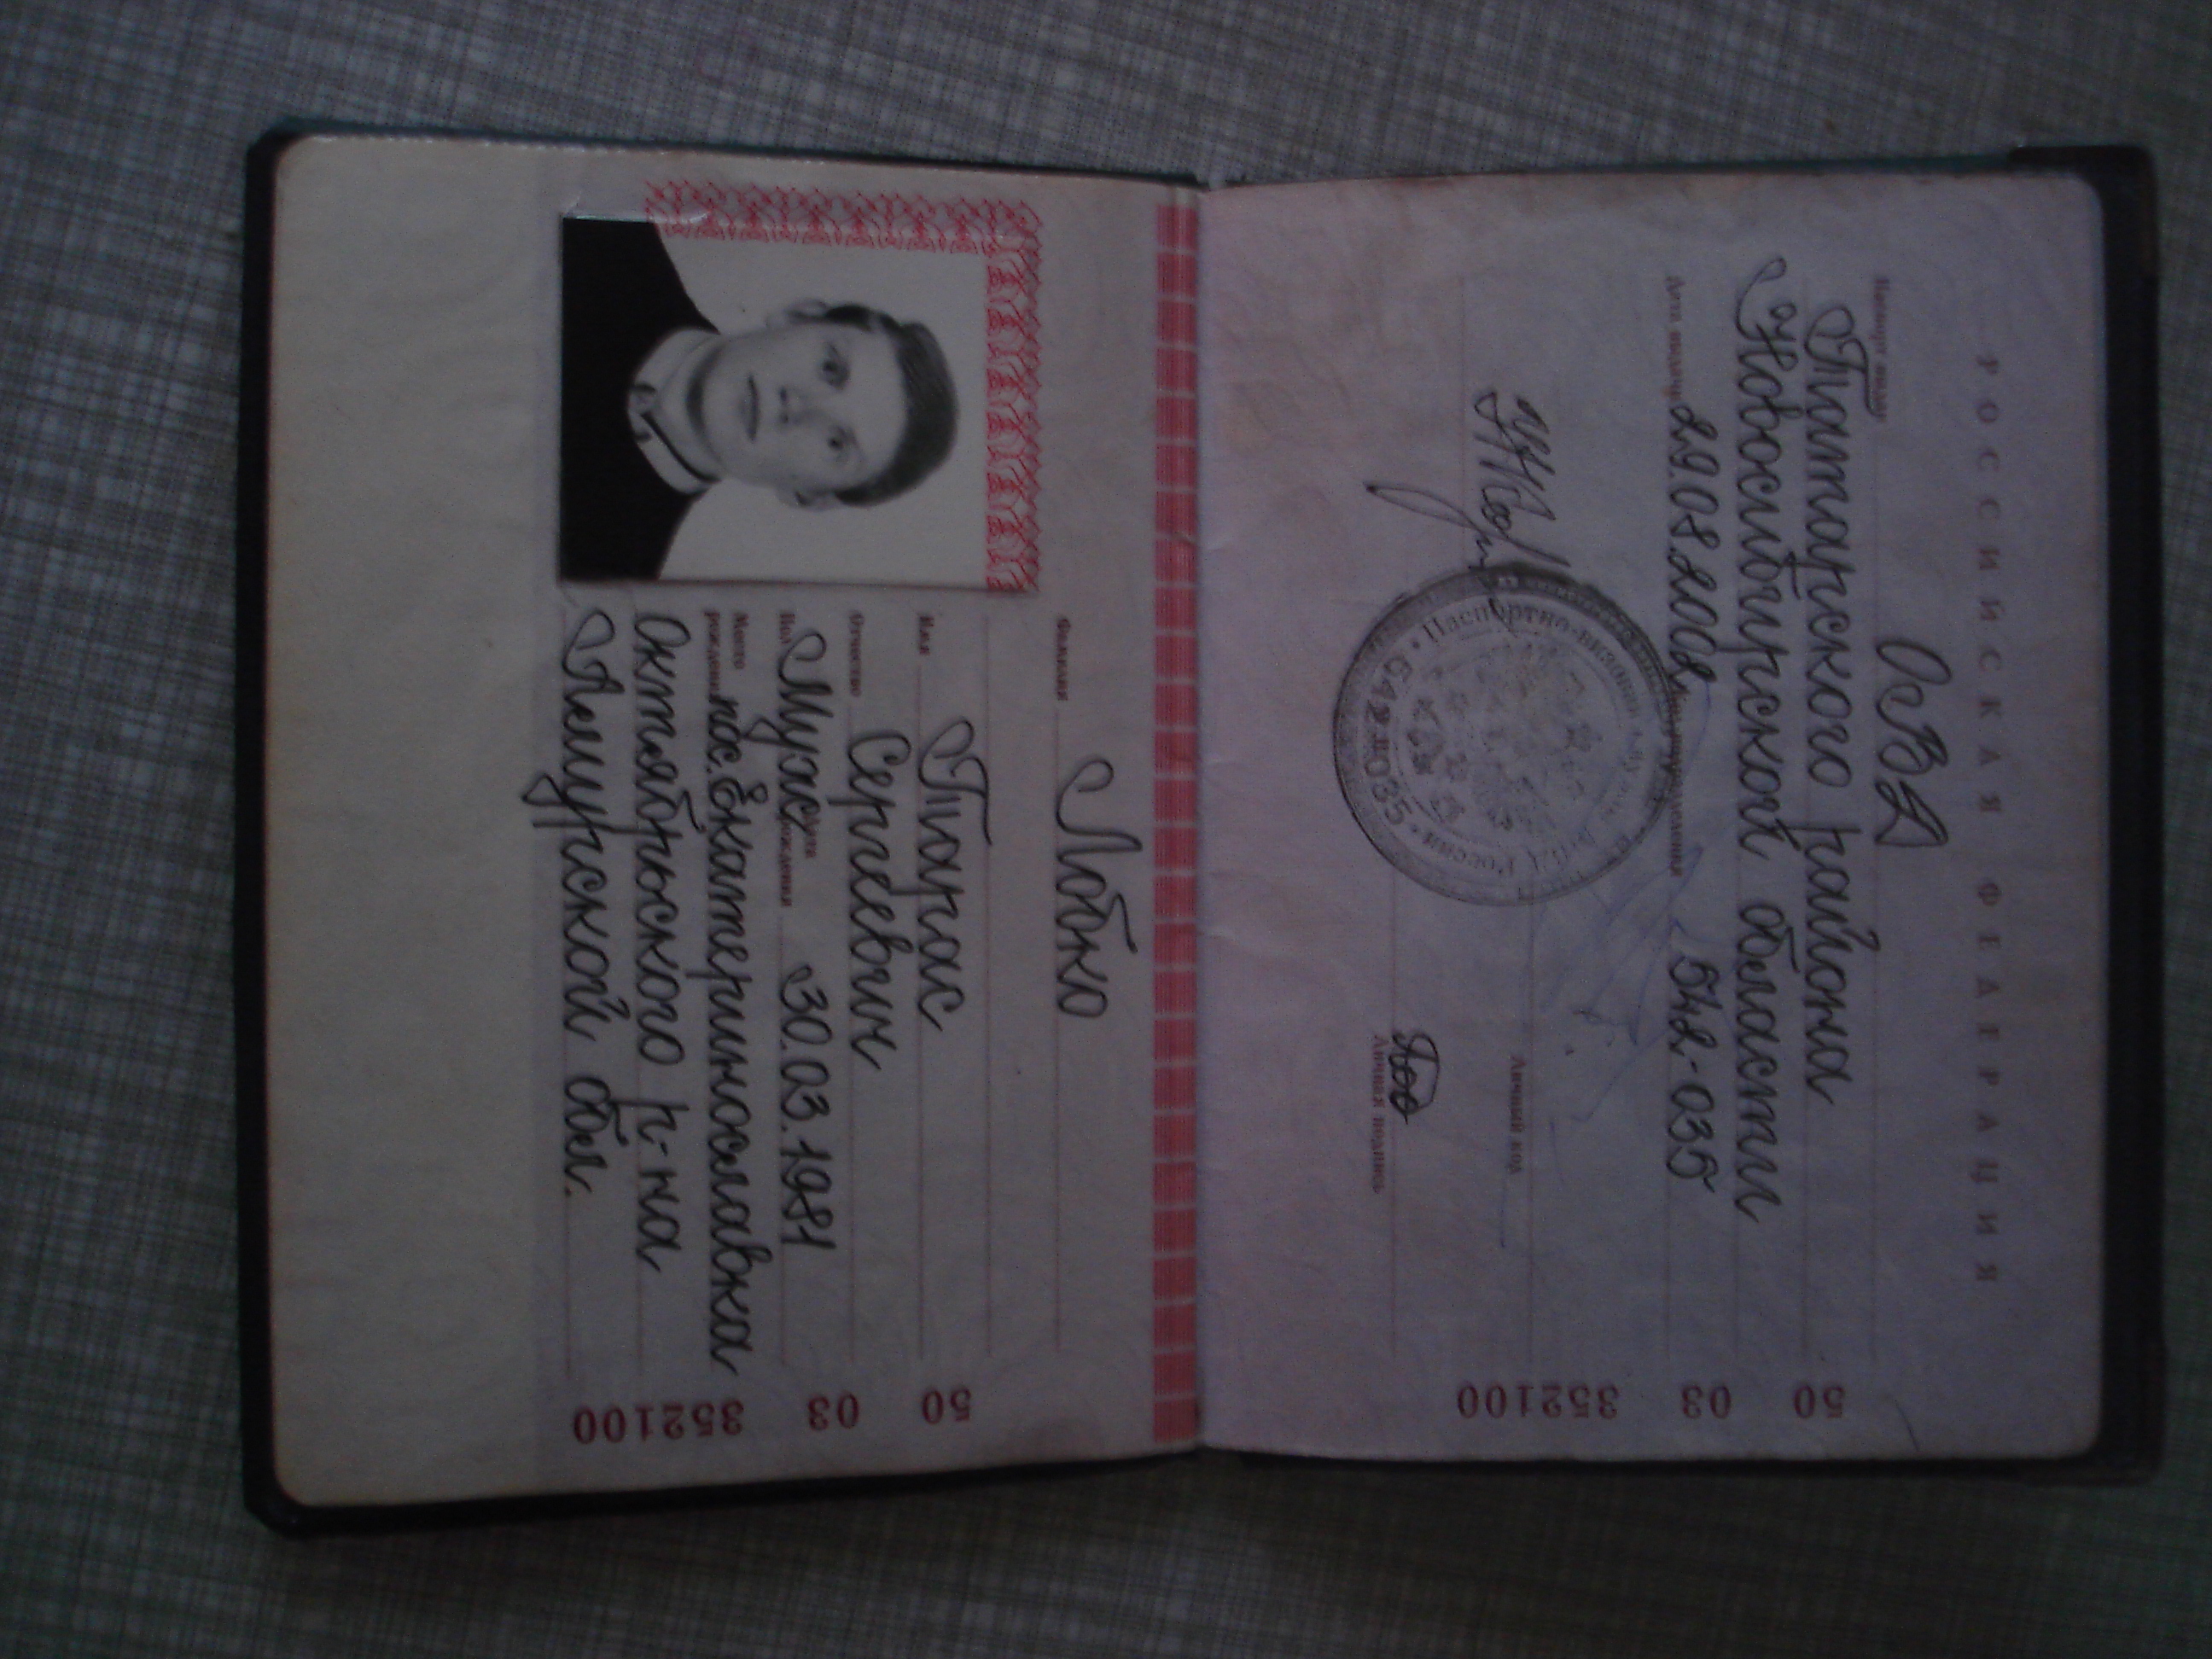 РОССИЙСКАЯ ФЕДЕРАЦИЯ
Паспорт выдан
ОВД
Татарского района
Новосибирской области
Дата выдачи 29.08.2003 Код подразделения 542-035
Личный код
Личная подпись
Паспортно-визовая служба
России
542-035
50 03 352100
Фамилия
Лобко
Имя Тарас
Отчество Сергеевич
Пол Муж Дата рождения 30.03.1981
Место рождения пос. Екатеринославка
Октябрьского р-на
Амурской обл.
50 03 352100